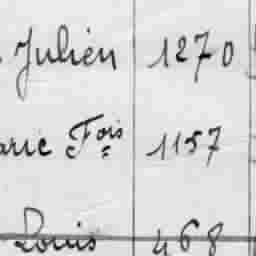 Julien 1270
arie Fois 1157
Louis 468